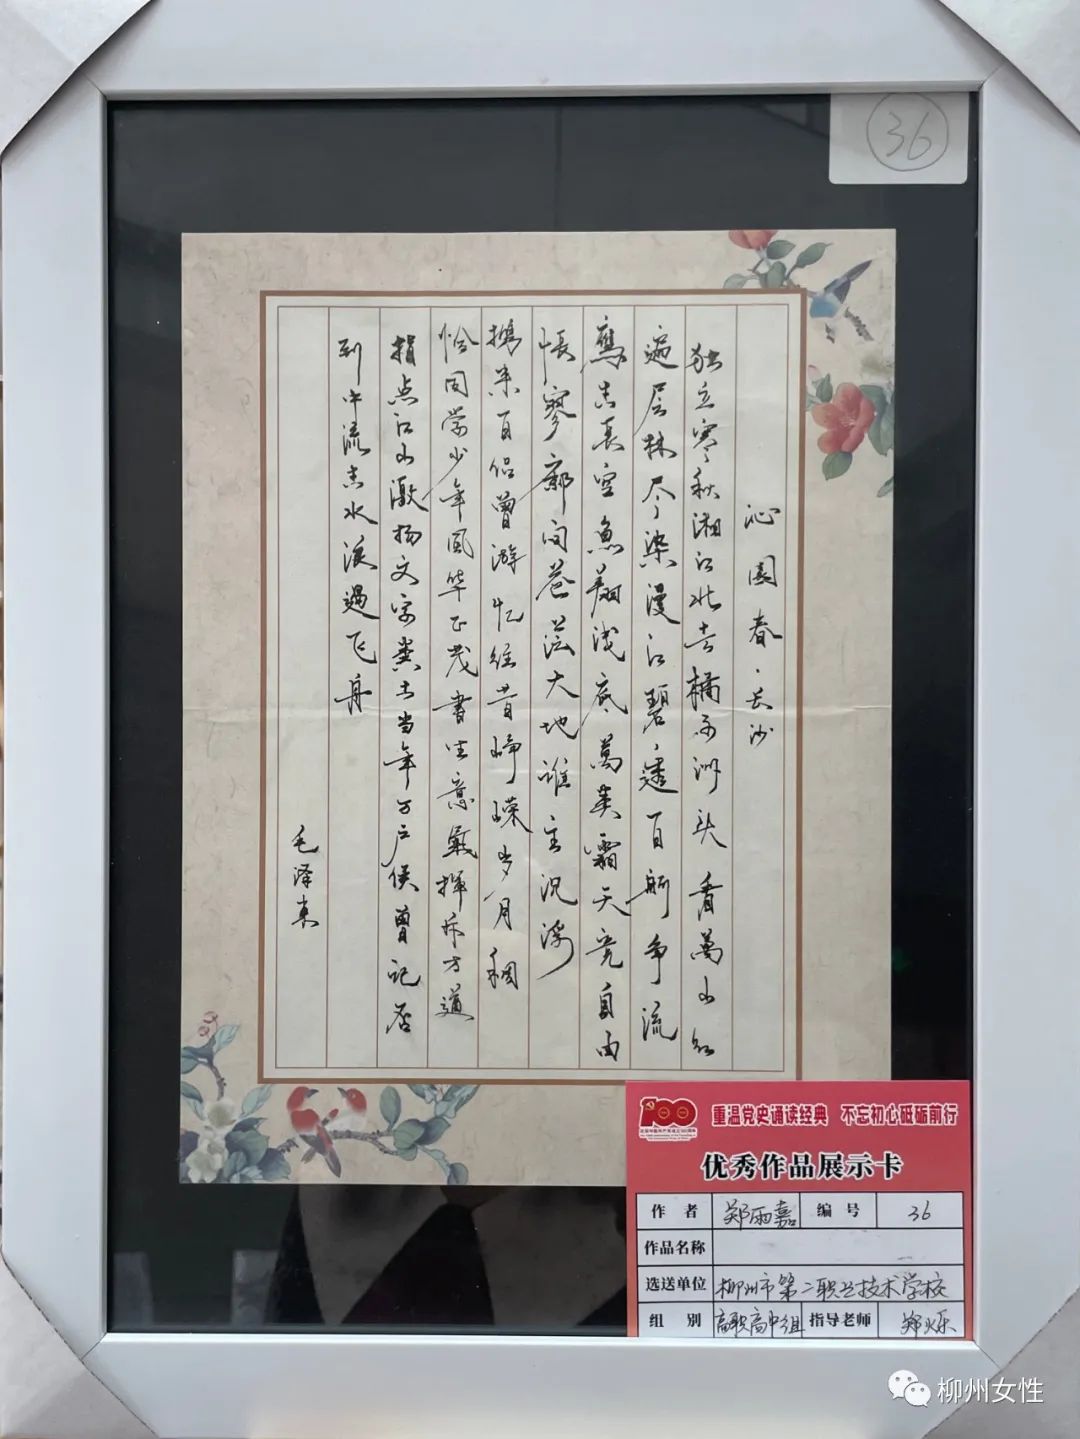 36
沁園春·长沙
独立寒秋湘江北去橘子洲头看萬山红
遍层林尽染漫江碧透百舸争流
鹰击長空魚翔浅底萬类霜天竞自由
怅寥廓问苍茫大地谁主沉浮
携来百侣曾游忆往昔峥嵘岁月稠
恰同学少年风华正茂書生意氣挥斥方遒
指点江山激扬文字粪土当年万户侯曾记否
到中流击水浪遏飞舟
毛泽東
100
重温党史诵读经典 不忘初心砥砺前行
优秀作品展示卡
作者 郑雨嘉 编号 36
作品名称
选送单位 柳州市第二职业技术学校
组别 高职高中组 指导老师 郑火乐
柳州女性